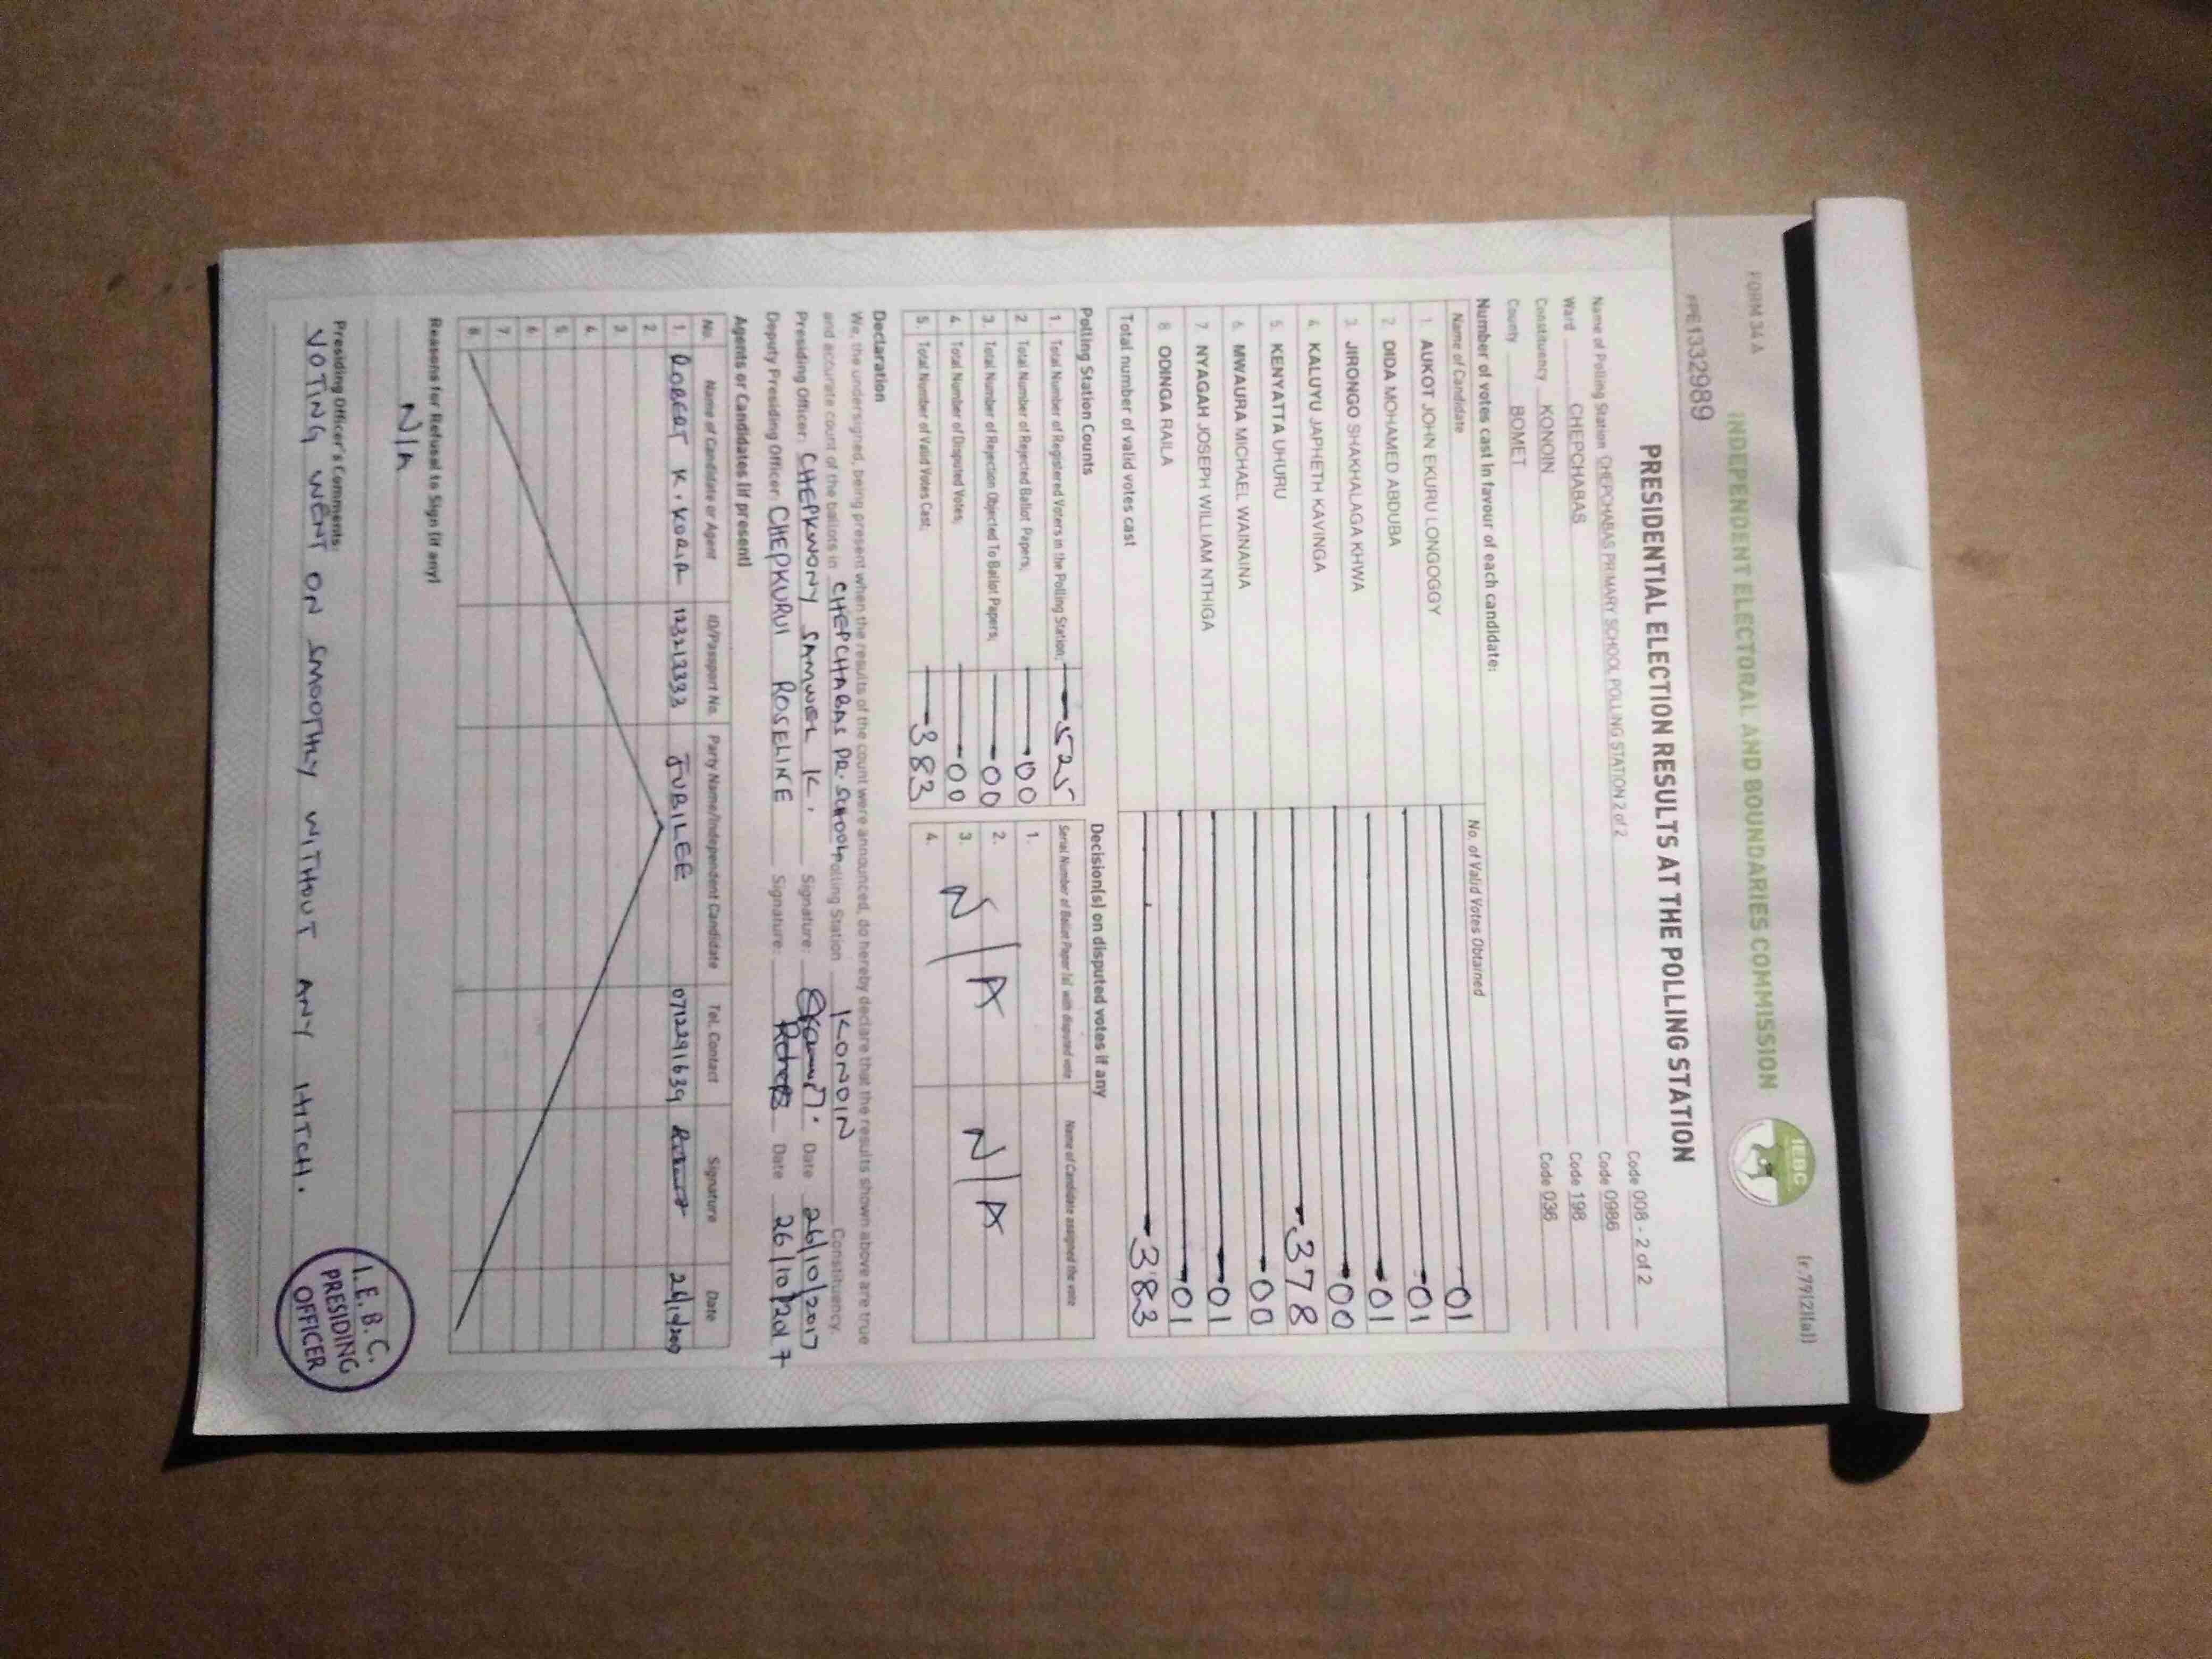 FORM 34 A (r.79(2)(a))
INDEPENDENT ELECTORAL AND BOUNDARIES COMMISSION
IEBC
PPE1332989
PRESIDENTIAL ELECTION RESULTS AT THE POLLING STATION
Name of Polling Station CHEPCHABAS PRIMARY SCHOOL POLLING STATION 2 of 2 Code 008 - 2 of 2
Ward CHEPCHABAS Code 0986
Constituency KONOIN Code 198
County BOMET Code 036
Number of votes cast in favour of each candidate:
Name of Candidate No. of Valid Votes Obtained
1. AUKOT JOHN EKURU LONGOGGY 01
2. DIDA MOHAMED ABDUBA 01
3. JIRONGO SHAKHALAGA KHWA 01
4. KALUYU JAPHETH KAVINGA 00
5. KENYATTA UHURU 378
6. MWAURA MICHAEL WAINAINA 00
7. NYAGAH JOSEPH WILLIAM NTHIGA 01
8. ODINGA RAILA 01
Total number of valid votes cast 383
Polling Station Counts
1. Total Number of Registered Voters in the Polling Station; 525
2. Total Number of Rejected Ballot Papers; 00
3. Total Number of Rejection Objected To Ballot Papers; 00
4. Total Number of Disputed Votes; 00
5. Total Number of Valid Votes Cast; 383
Decision(s) on disputed votes if any
Serial Number of Ballot Paper (s) with disputed vote Name of Candidate assigned the vote
1.
2. N/A N/A
3.
4.
Declaration
We, the undersigned, being present when the results of the count were announced, do hereby declare that the results shown above are true
and accurate count of the ballots in CHEPCHABAS PR. SCHOOL Polling Station KONOIN Constituency.
Presiding Officer: CHEPKWONY SAMWEL K. Signature: Date 26/10/2017
Deputy Presiding Officer: CHEPKURUI ROSELINE Signature: Date 26/10/2017
Agents or Candidates (if present)
No. Name of Candidate or Agent ID/Passport No. Party Name/Independent Candidate Tel. Contact Signature Date
1. ROBERT K. KORIR 12321333 JUBILEE 0712291639
2.
3.
4.
5.
6.
7.
8.
Reasons for Refusal to Sign (if any)
N/A
Presiding Officer's Comments:
VOTING WENT ON SMOOTHLY WITHOUT ANY HITCH.
I.E.B.C.
PRESIDING
OFFICER